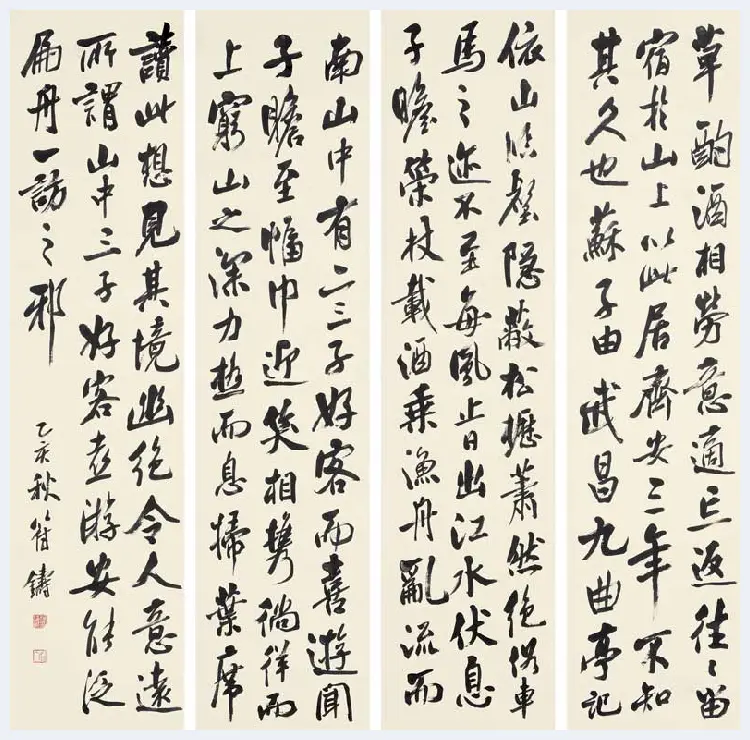 草酌酒相勞意適忘返往〻留
宿於山上以此居齊安三年不知
其久也蘇子由武昌九曲亭記
依山臨壑隱蔽松櫪蕭然絕俗車
馬之迹不至每風止日出江水伏息
子瞻策杖載酒乘漁舟亂流而
南山中有二三子好客而喜遊聞
子瞻至幅巾迎笑相攜徜徉而
上窮山之深力極而息掃葉席
讀此想見其境幽絕令人意遠
所謂山中二三子好客喜游安能泛
扁舟一訪之邪
乙亥秋符鑄